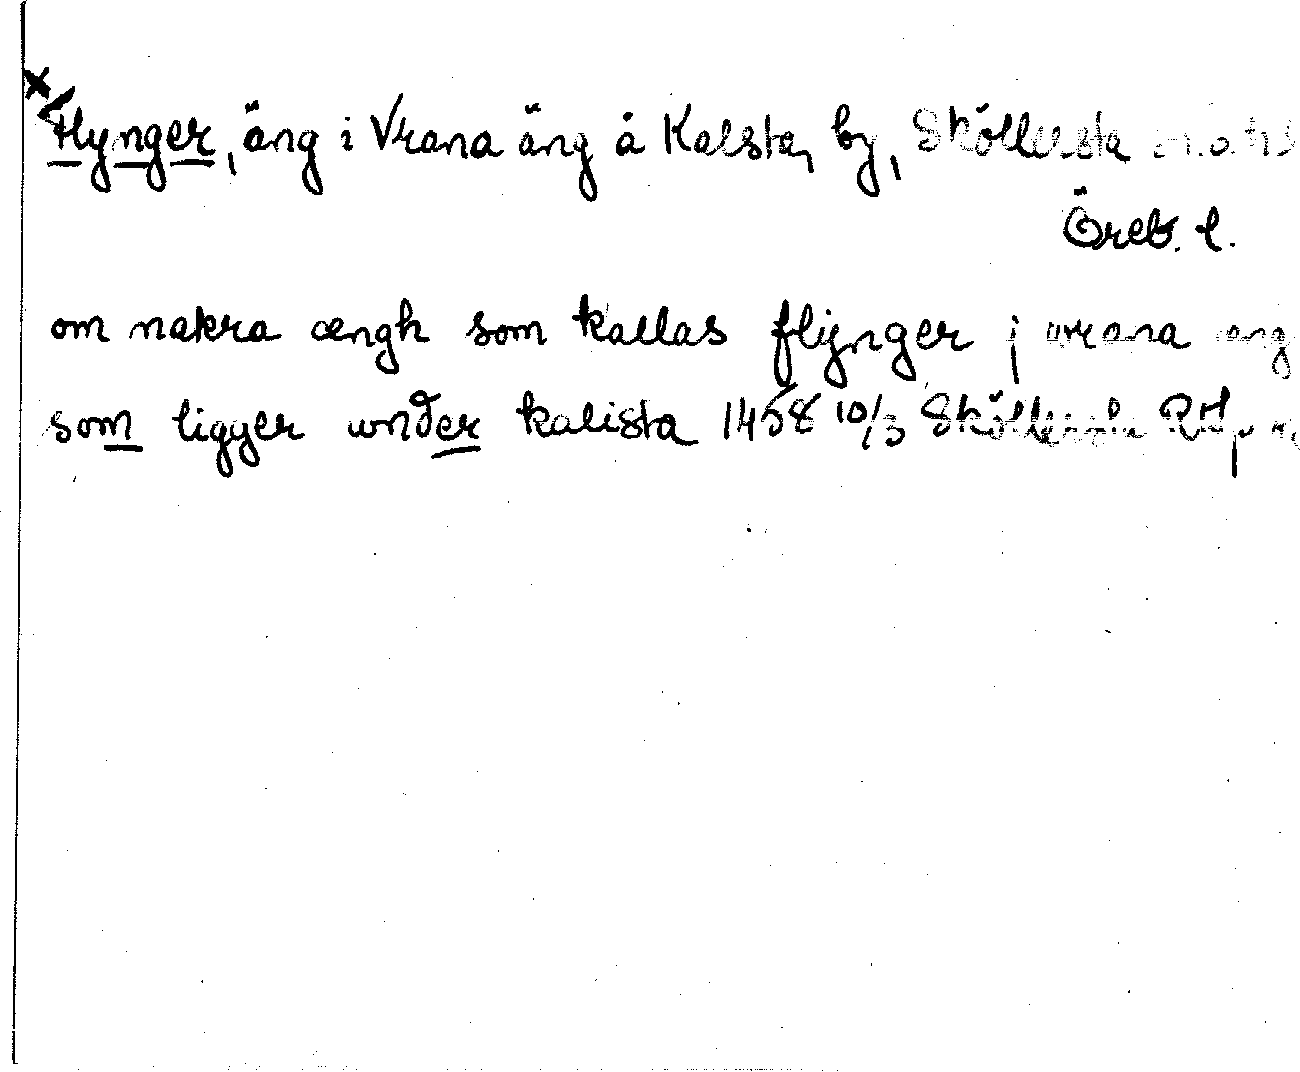 Flynger, äng i Vrana äng å Kalsta by, Sköllersta
Öreb. l.
om nakra ængh som kallas flijnger j wrana eng
som ligger wnder kalista 1458 10/3 Sköllersta RAp